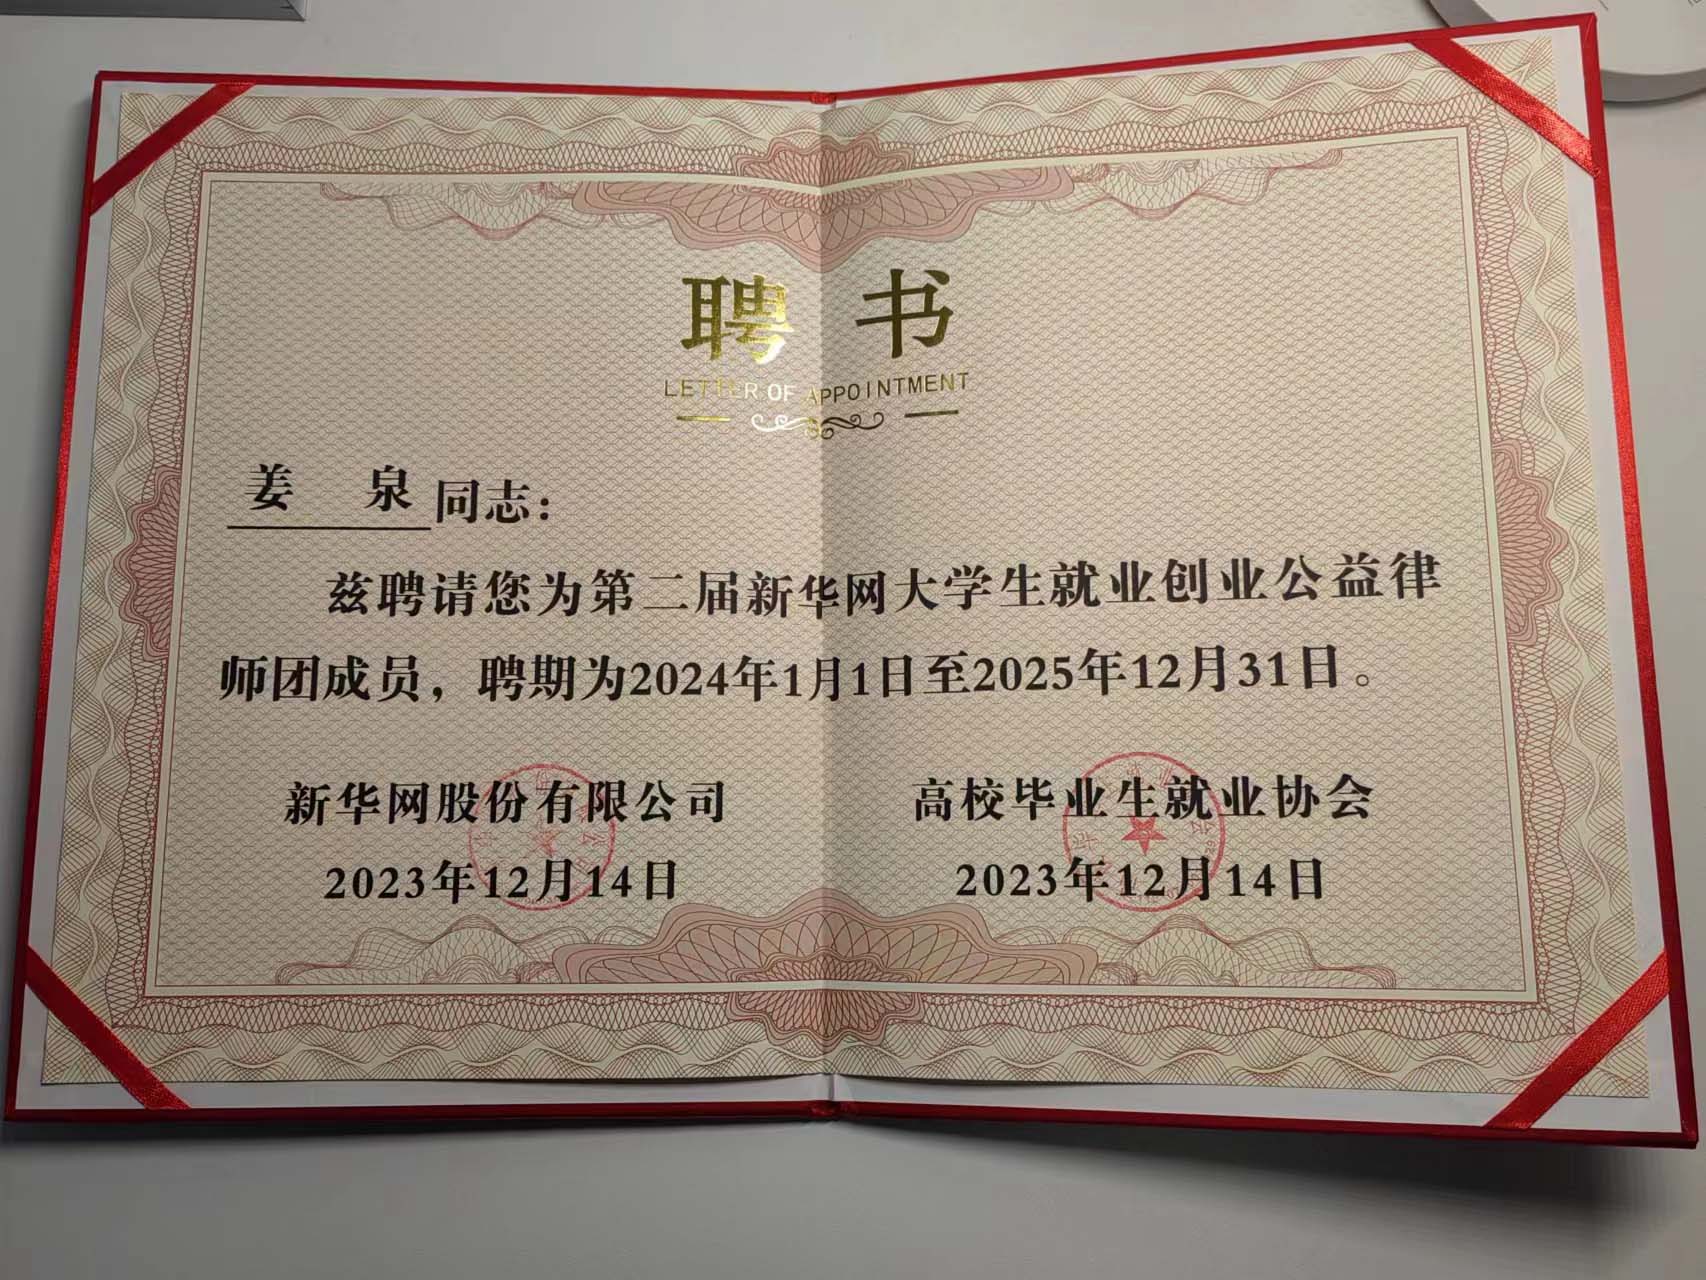 聘书
LETTER OF APPOINTMENT
姜泉同志：
兹聘请您为第二届新华网大学生就业创业公益律
师团成员，聘期为2024年1月1日至2025年12月31日。
新华网股份有限公司
2023年12月14日
高校毕业生就业协会
2023年12月14日